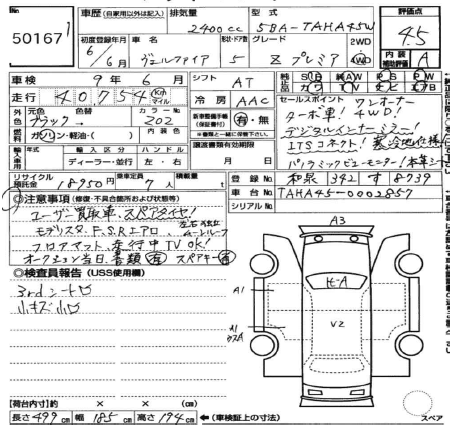 50167
車歴 (自家用以外は記入) 排気量 2400cc 型式 5BA-TAHA45W
評価点 4.5
初度登録年月 6/6月 車名 ヴェルファイア 形状・ドア数 5 グレード Z プレミア 2WD 4WD
内装補助評価 A
車検 9年6月 シフト AT
走行 40,754 km マイル 冷房 AAC
純正装備品 SR AW PS PW カワ TV ナビ エアB
外色 元色 ブラック→ 色替 カラーNo. 202
燃料 ガソリン・軽油・( ) 内装色
新車整備手帳(保証書付) 有・無
※書類と一緒に保管下さい。
セールスポイント ワンオーナー
ターボ車! 4WD!
デジタルインナーミラー!
ITSコネクト! 寒冷地仕様
パノラミックビューモニター!本革シート
輸入車用 年式 輸入区分 ディーラー・並行 ハンドル 左・右
譲渡書類有効期限 月 日
リサイクル預託金 18950円 乗車定員 7人 積載量 t
登録No. 和泉 342 す 8939
車台No. TAHA45-0002857
シリアルNo.
◎注意事項 (修復・不具合箇所および状態等)
ユーザー買取車、スペアタイヤ!
モデリスタF.S.Rエアロ、左右独立ムーンルーフ
フロアマット、走行中TV OK!
オークション当日 書類 有 スペアキー 有
◎検査員報告 (USS使用欄)
3rdシート凹
小キズ小凹
A3
A1
ヒーA
V2
A1
【荷台内寸】約 × × (cm)
長さ 499 cm 幅 185 cm 高さ 194 cm ←(車検証上の寸法)
スペア